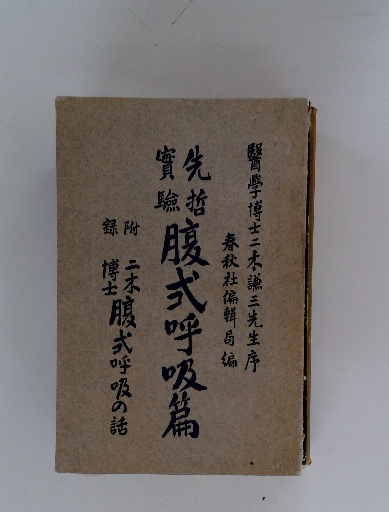 醫學博士二木謙三先生序
春秋社編輯局編
先哲
實驗
腹式呼吸篇
附錄
二木
博士
腹式呼吸の話